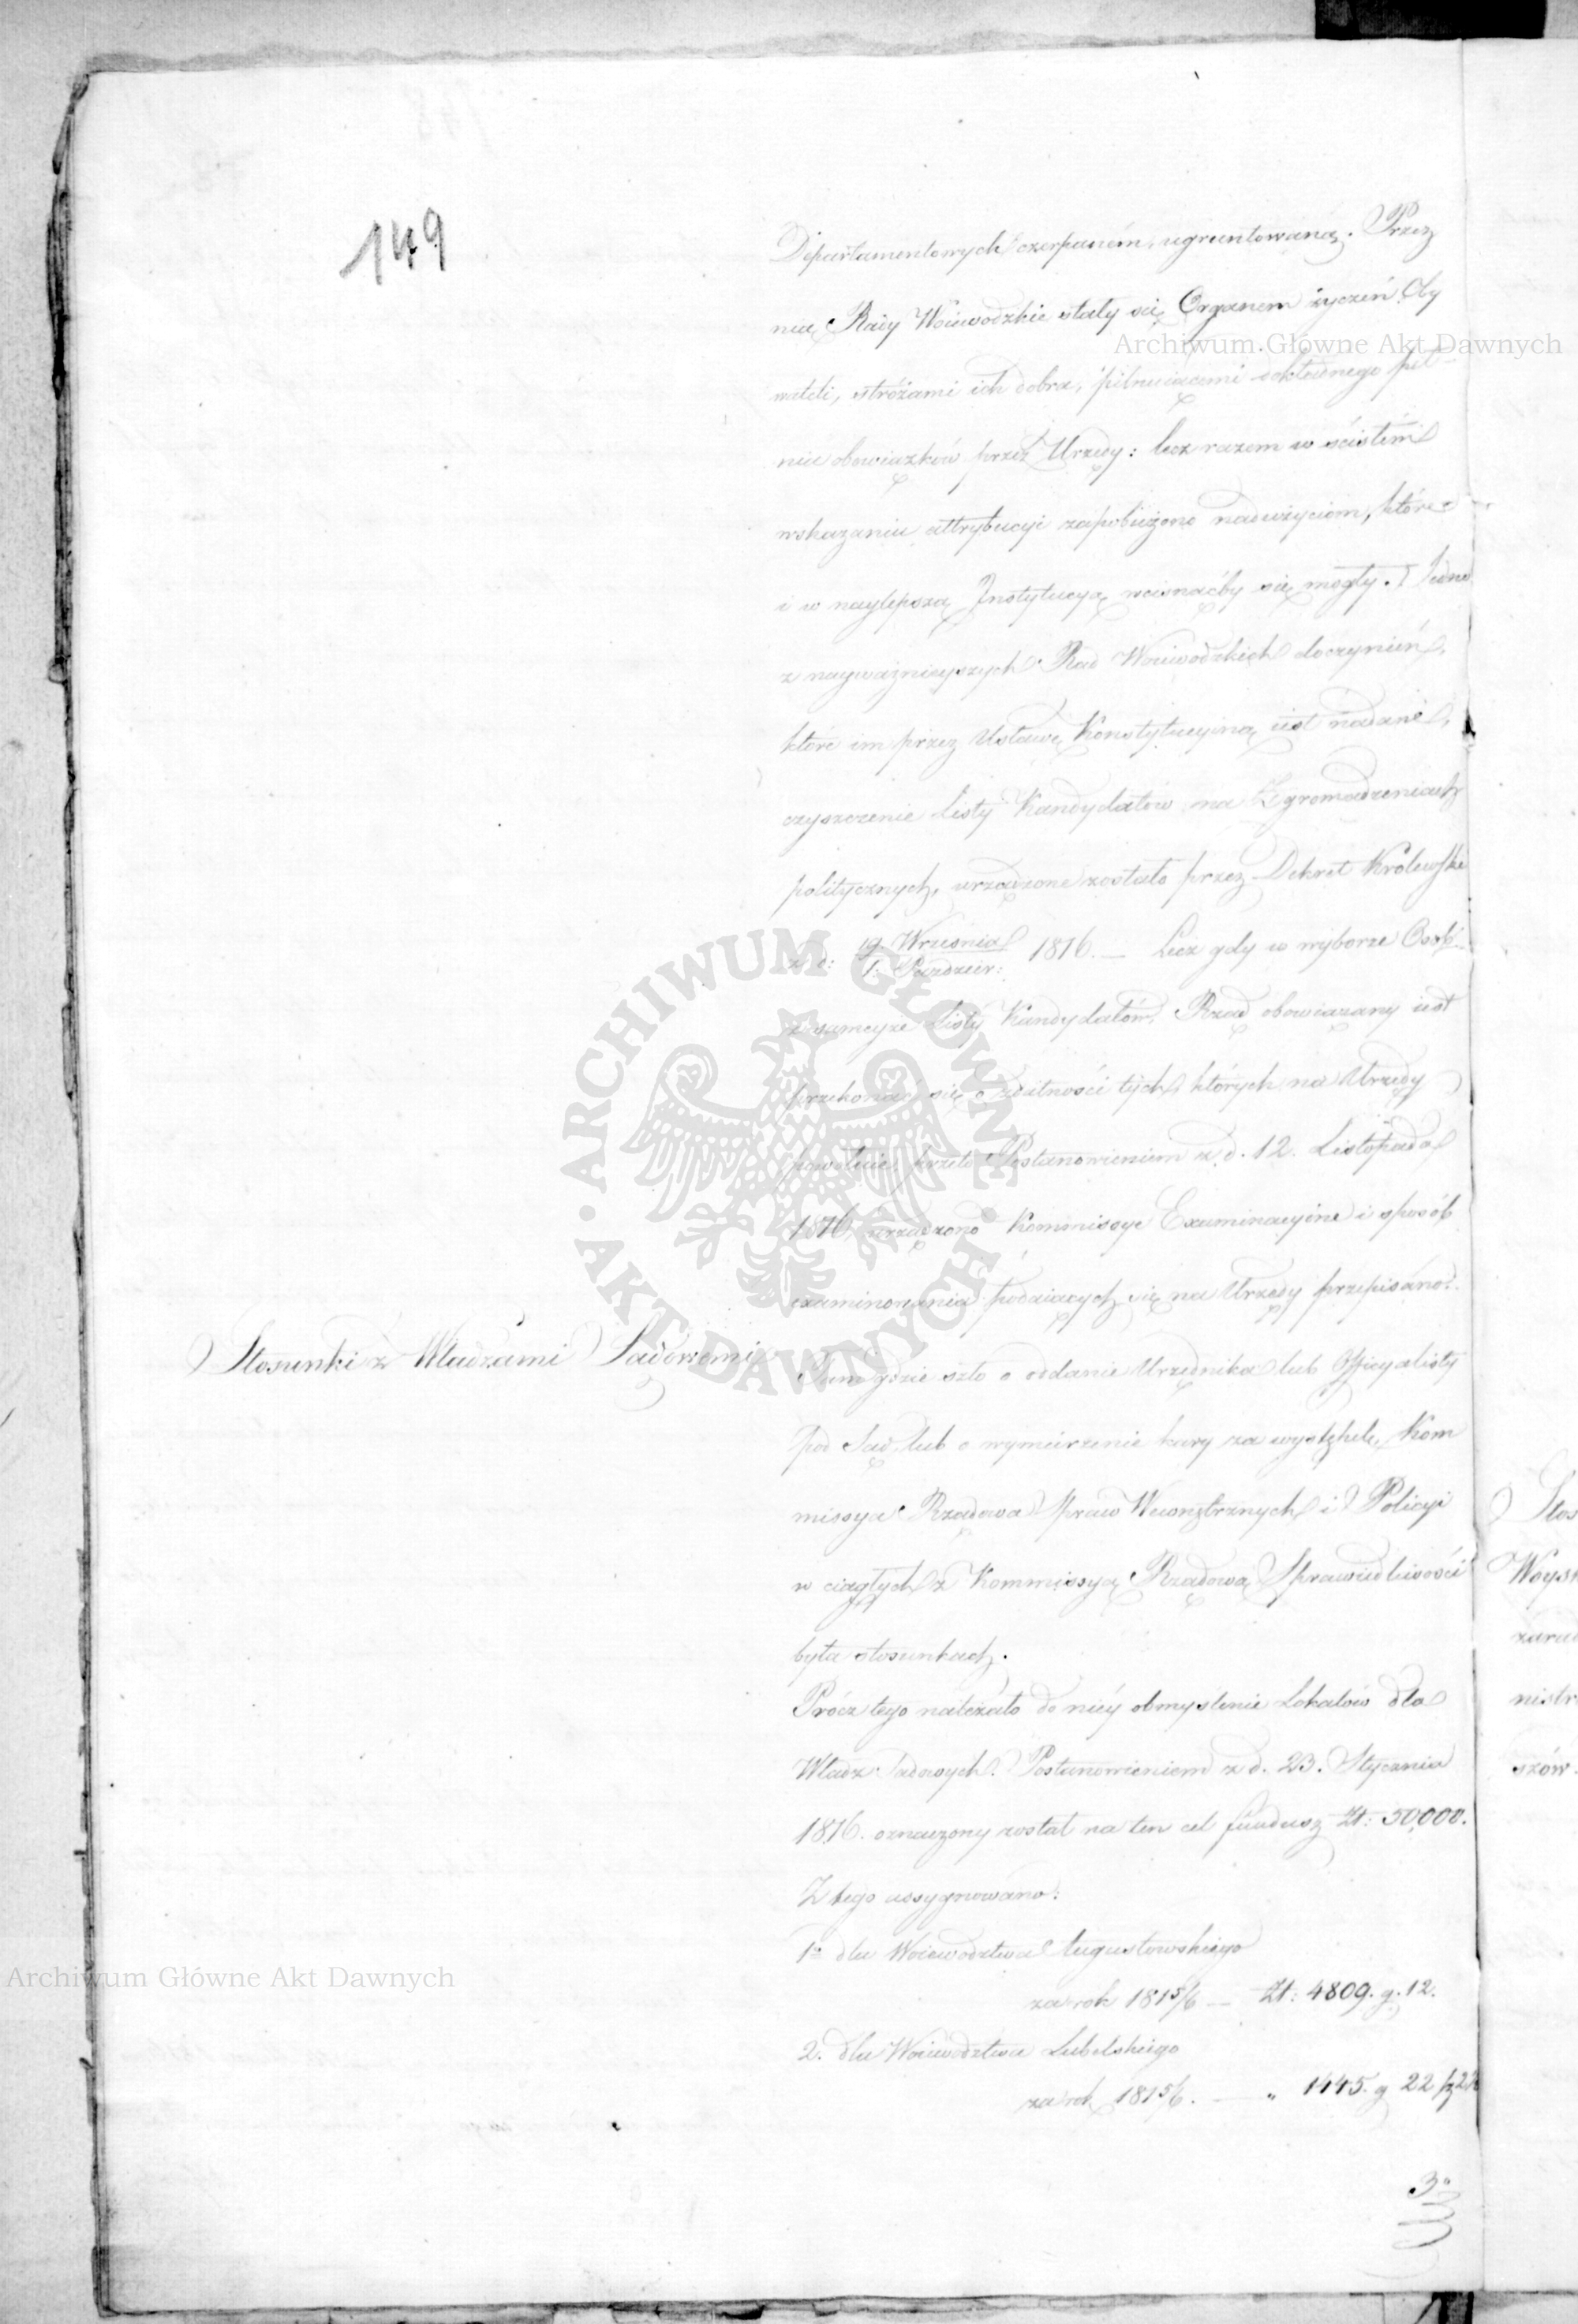 149
Departamentowych czerpaném, ugruntowaną. Przez
nią Rady Woiewodzkie stały się Organem życzeń Oby
wateli, stróżami ich dobra, pilnuiącemi dokładnego peł-
nie obowiązków przez Urzędy: lecz razem w ścisłém
wskazaniu attrybucyi zapobieżono nadużyciom, które
i w naylepszą Instytucyą wcisnąćby się mogły. Jedno
z nayważnieyszych Rad Woiewodzkich do czynień,
które im przez Ustawę Konstytucyiną iest nadané,
czyszczenie Listy Kandydatów na Zgromadzeniach
politycznych, urządzone zostało przez Dekret Królewski
z d: 19. Września / 1. Paździer: 1816. — Lecz gdy w wyborze Osób
z sameyże Listy Kandydatów, Rząd obowiązany iest
przekonać się o zdatności tych, których na Urzędy
powołuie, przeto Postanowieniem z d. 12. Listopada
1816, urządzono Kommissye Examinacyine i sposób
examinowania podaiących się na Urzędy przepisano.
Stosunki z Władzami Sądowemi
Tam gdzie szło o oddanie Urzędnika lub Officyalisty
pod Sąd, lub o wymierzenie kary za występek, Kom
missya Rządowa Spraw Wewnętrznych i Policyi
w ciągłych z Kommissyą Rządową Sprawiedliwości
była stosunkach.
Prócz tego należało do niéy obmyślenie Lokalów dla
Władz Sądowych. Postanowieniem z d. 23. Stycznia
1816. oznaczony został na ten cel fundusz Zł: 50,000.
Z tego assygnowano:
1º dla Woiewodztwa Augustowskiego
za rok 1815/6 — Zł: 4809. g. 12.
2. dla Woiewodztwa Lubelskiego
za rok 1815/6. — " 1445. g 22
3º
Stos
Woysk
nistr
szów.
Archiwum Główne Akt Dawnych
Archiwum Główne Akt Dawnych
ARCHIWUM GŁÓWNE · AKT DAWNYCH ·